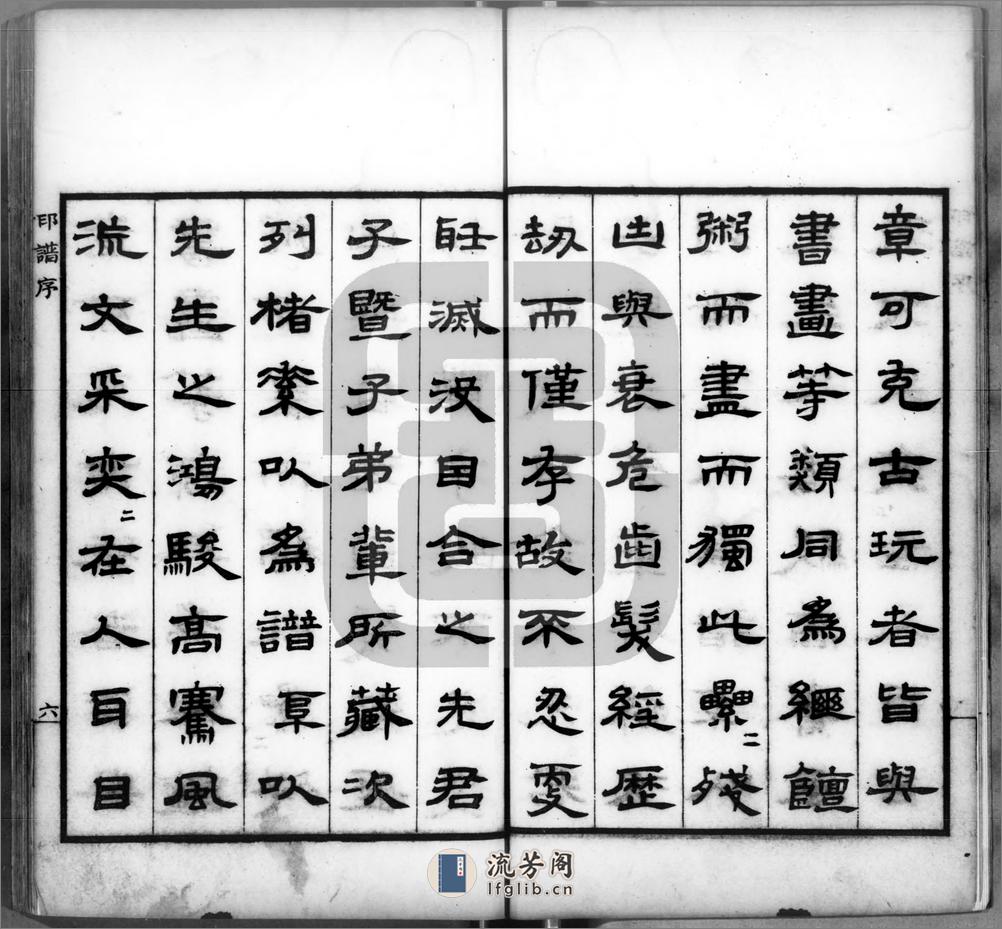 章可克古玩者皆與
書畫等類同為繼饘
粥而盡而獨此纍二殘
凷與衰危齒髮經歷
劫而僅存故不忍
滅沒自合之先君
子暨子弟輩所藏次
列楮素以為譜以
先生之鴻駿高騫風
流文采奕二在人耳目
印譜序
六
流芳阁
lfglib.cn